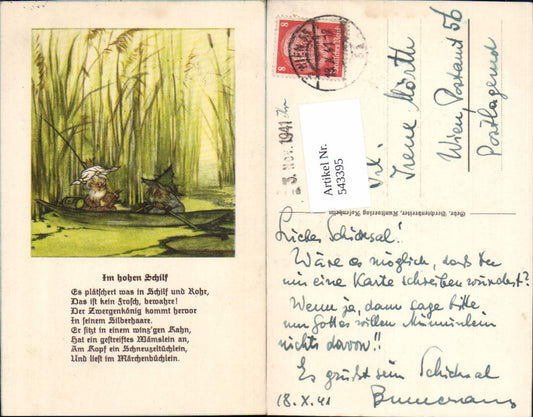 Im hohen Schilf
Es plätschert was in Schilf und Rohr,
Das ist kein Frosch, bewahre!
Der Zwergenkönig kommt hervor
In seinem Silberhaare.
Er sitzt in einem winz'gen Kahn,
Hat ein gestreiftes Wämslein an,
Am Kopf ein Schneuzetüchlein,
Und liest im Märchenbüchlein.
WIEN
8
8
Deutsches Reich
3. Nov. 1941
Artikel Nr.
543395
Frl.
Irene Mörth
Wien, Postamt 56
Postlagernd
Gebr. Kunstverlag
Liebes Schicksal!
Wäre es möglich, daß Du
mir eine Karte schreiben würdest?
Wenn ja, dann sage bitte
um Gottes willen
nichts davon!!
Es grüßt sein Schicksal
18.X.41